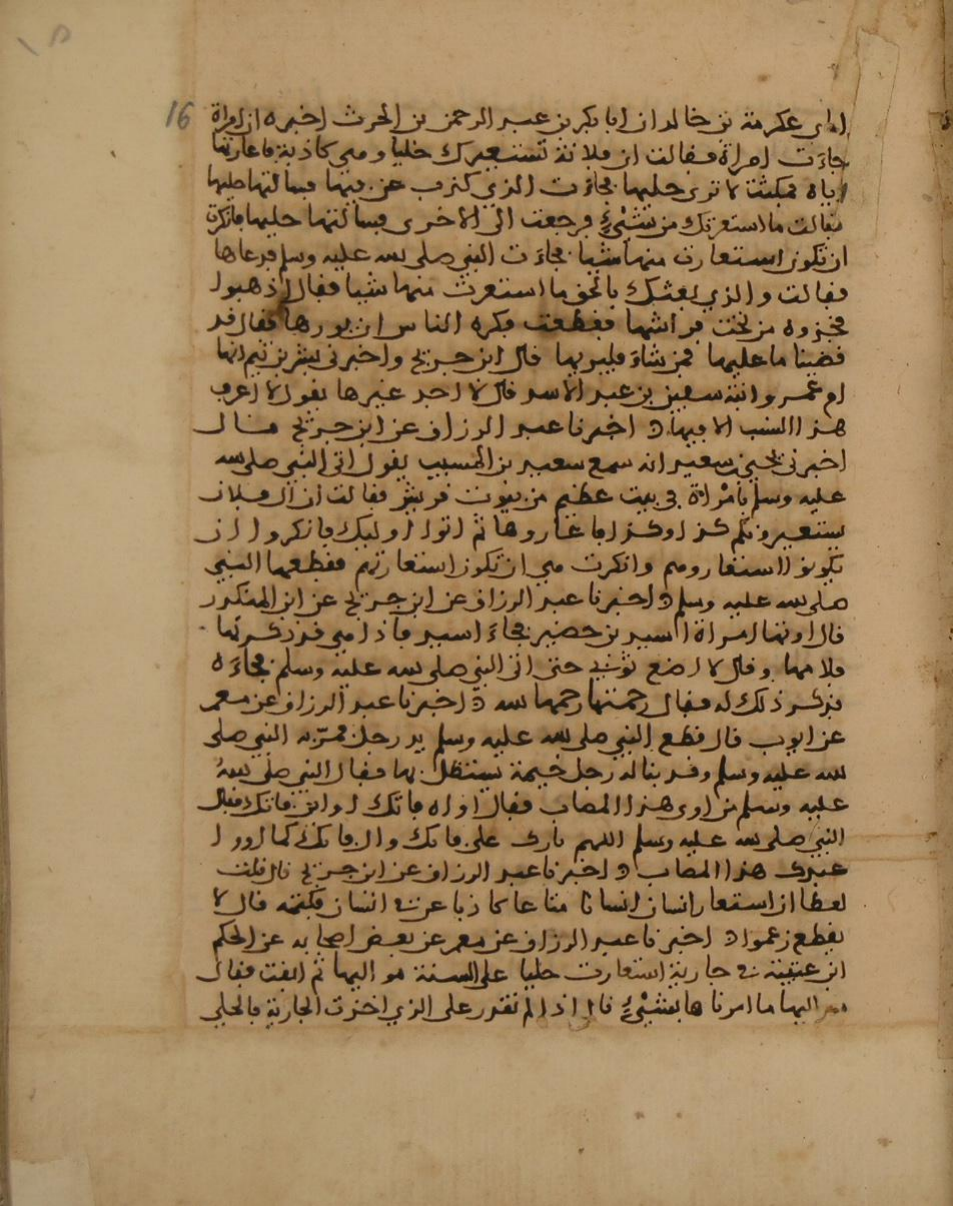 16
عكرمة بن خالد ان ابا بكر بن عبد الرحمن بن الحرث اخبره ان امراة
جاءت امراة فقالت ان فلانة تستعيرك حليا وهي كاذبة فاعارتها
اياه فمكثت لا ترى حليها فجاءت الذي كذب عن فيها فسالتها حليها
فقالت ما استعرتك من شيء فرجعت الى الاخرى فسالتها حليها فانكرت
ان تكون استعارت منها شيا فجاءت النبي صلى الله عليه وسلم فدعاها
فقالت والذي بعثك بالحق ما استعرت منها شيا فقال اذهبوا
فخذوه من تحت فراشها فقطعت فكره الناس ان يوروها فقال قد
قضينا ما عليها فمن شاء فليوريها قال ابن جريج واخبرني بشر بن تيم انها
ام عمرو ابنة سفين بن عبد الاسد قال لا احد غيرها يقول لا اعرف
هذا النسب الا فيها اخبرنا عبد الرزاق عن ابن جريج قال
اخبرني يحيى بن سعيد انه سمع سعيد بن المسيب يقول اتي النبي صلى الله
عليه وسلم بامراة في بيت عظيم من بيوت قريش فقالت ان ال فلان
يستعيرونكم كذا وكذا فاعاروها ثم اتوا اوليك فانكروا ان
يكونوا استعاروهم وانكرت هي ان تكون استعارتهم فقطعها النبي
صلى الله عليه وسلم اخبرنا عبد الرزاق عن ابن جريج عن ابن المنكدر
قال اوتها امراة اسيد بن حضير فجاء اسيد فاذا هي قد ذكرتها
فلامها وقال لا اضع ثوبي حتى اتي النبي صلى الله عليه وسلم فجاءه
فذكر ذلك له فقال رحمتها رحمها الله اخبرنا عبد الرزاق عن معمر
عن ايوب قال قطع النبي صلى الله عليه وسلم يد رجل فمر به النبي صلى
الله عليه وسلم وقد بنا له رجل خيمة يستظل بها فقال النبي صلى الله
عليه وسلم من اوى هذا المصاب فقال اواه فاتك او ابن فاتك فقال
النبي صلى الله عليه وسلم اللهم بارك على فاتك وال فاتك كما اووا
عبدك هذا المصاب اخبرنا عبد الرزاق عن ابن جريج قال قلت
لعطا ان استعار انسان انسانا متاعا كاذبا عن انسان فكتمه قال لا
يقطع زعموا اخبرنا عبد الرزاق عن معمر عن بعض اصحابه عن الحكم
ابن عتيبة في جارية استعارت حليا على السنة مواليها ثم ابقت فقال
مواليها ما امرناها بشيء قال اذا لم تقدر على الذي اخذت الجارية بالحلي